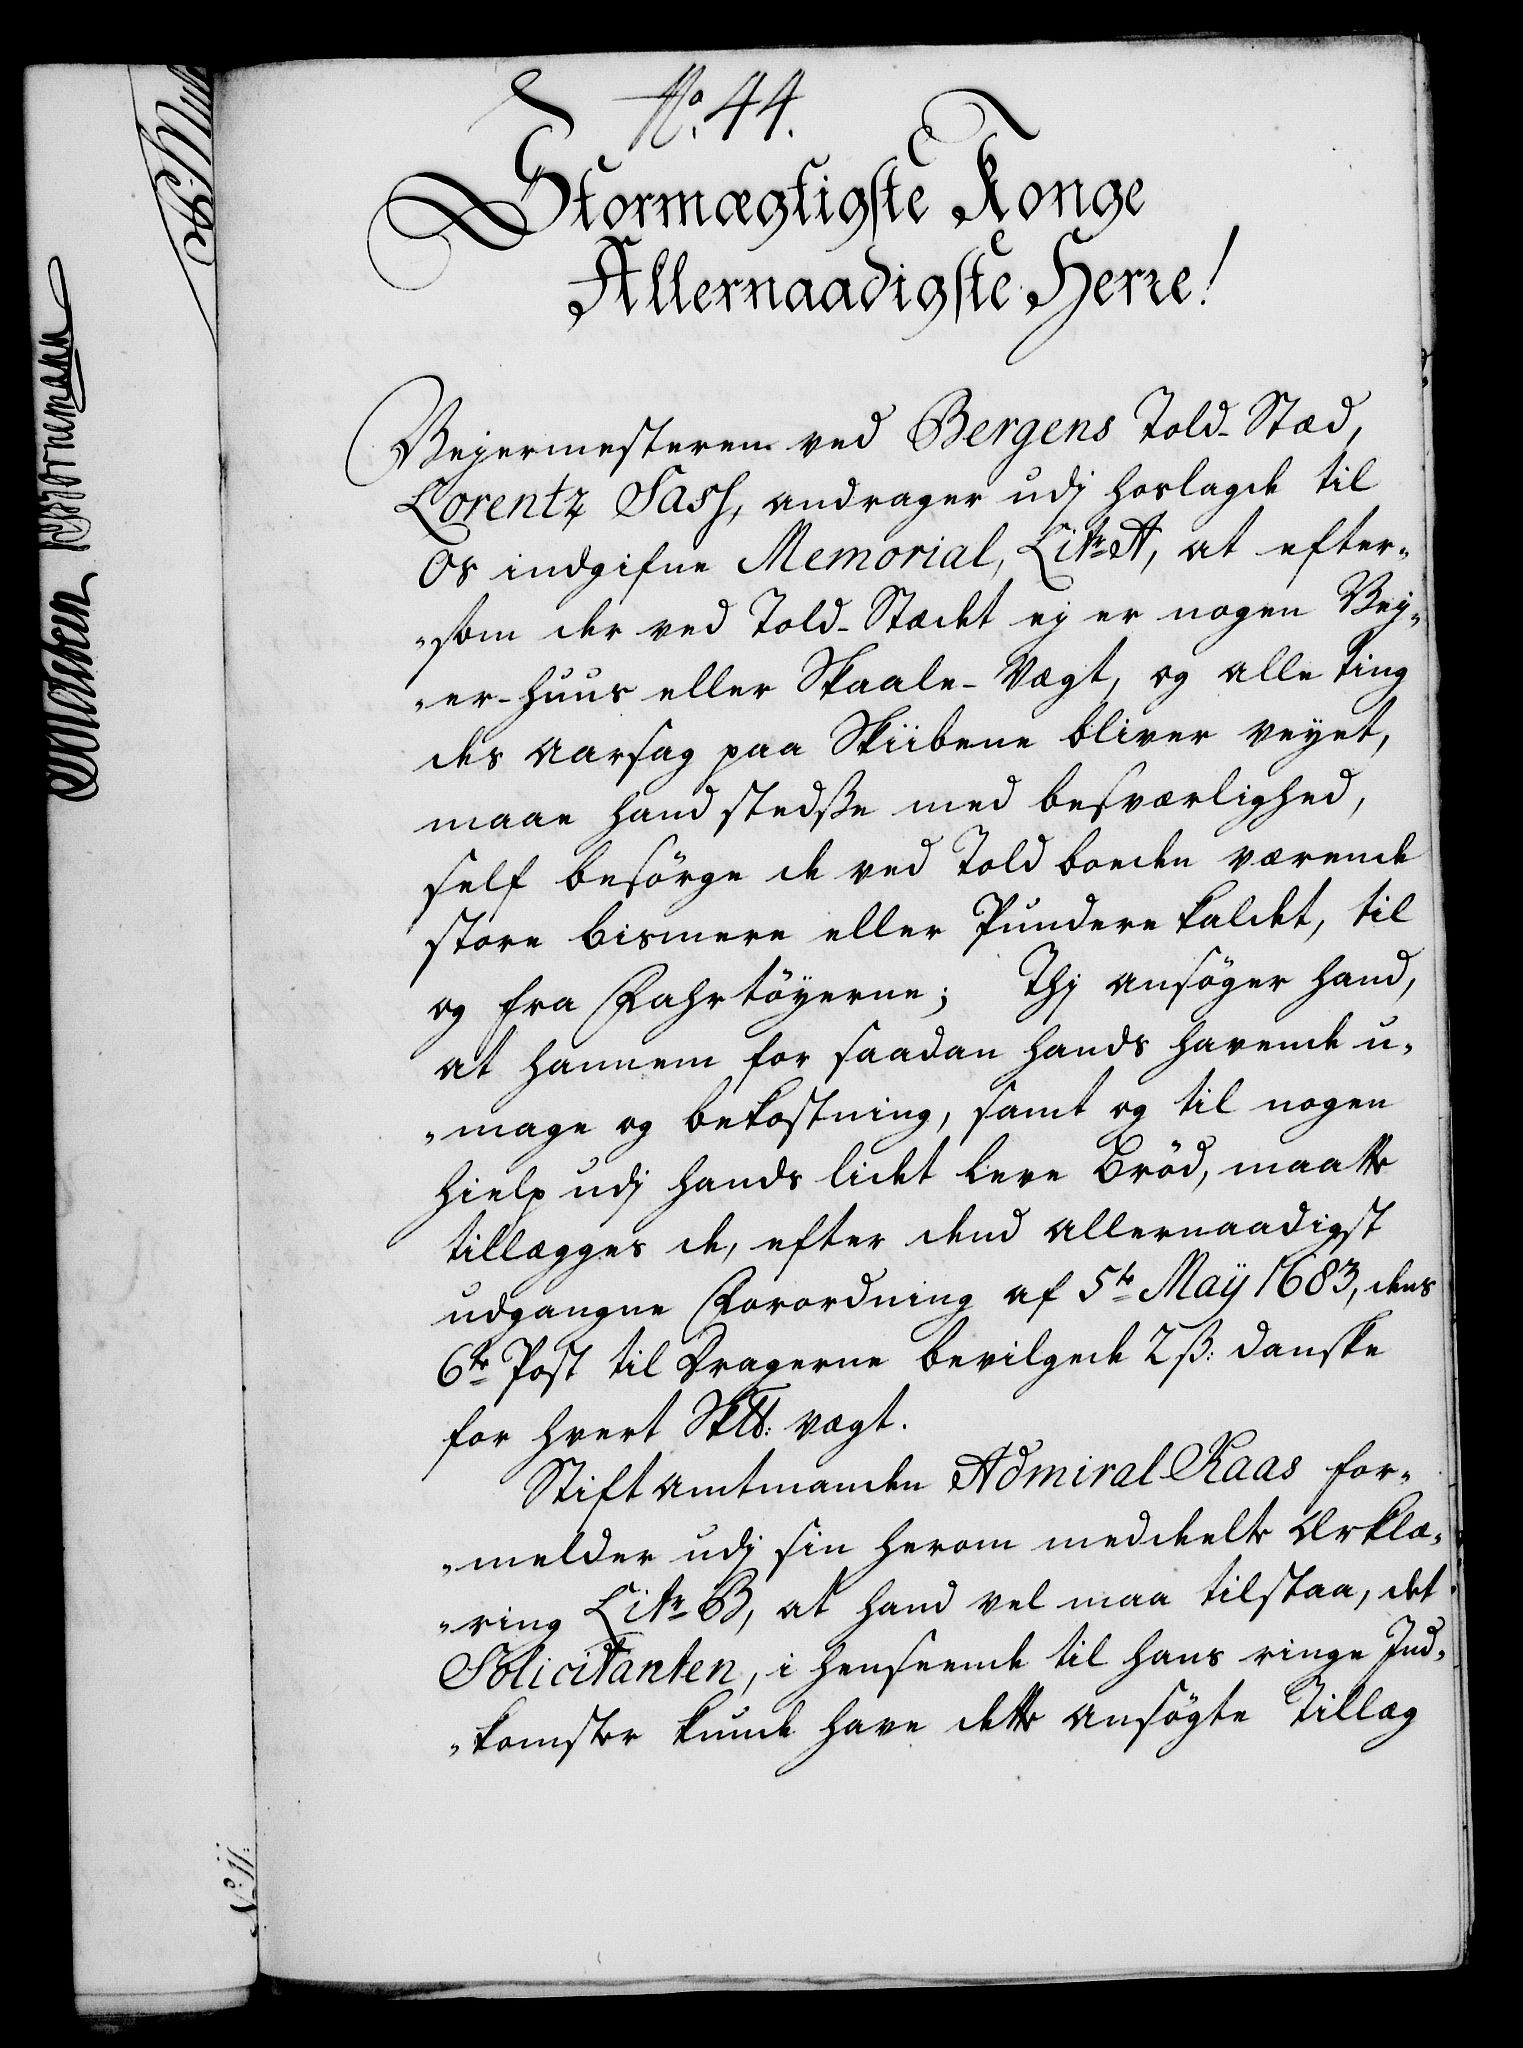 No. 44.
Stormægtigste Konge
Allernaadigste Herre!
Veyermesteren ved Bergens Told-Stæd,
Lorentz Sass, andrager udj hoslagde til
Os indgifne Memorial, Litr. A, at efter-
-som der ved Told-Stædet ej er nogen Vey-
-er-huus eller Skaale-Vægt, og alle ting
des aarsag paa Skiibene bliver veyet,
maae hand stedsse med besværlighed,
self besörge de ved Toldboeden værende
store bismere eller Pundere kaldet, til
og fra Fahrtöyerne; Thj ansöger hand,
at hannem for saadan hands havende u-
-mage og bekostning, samt og til nogen
hielp udj hands lidet leve bröd, maatte
tillægges de, efter dend allernaadigst
udgangne Forordning af 5te Maÿ 1683, dens
6te Post til Dragerne bevilgede 2 ß: danske
for hvert Sk℔: vægt.
Stiftamtmanden Admiral Kaas for-
-melder udj sin herom meddeelte Erklæ-
-ring Litr. B, at hand vel maa tilstaa, det
Solicitanten, i henseende til hans ringe Ind-
-komster kunde have dette ansögte Tillæg
No. 11.